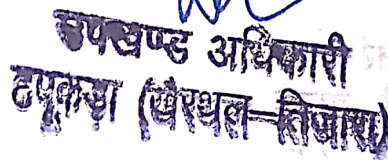 उपखण्ड अधिकारी
टपूकड़ा (खैरथल-तिजारा)